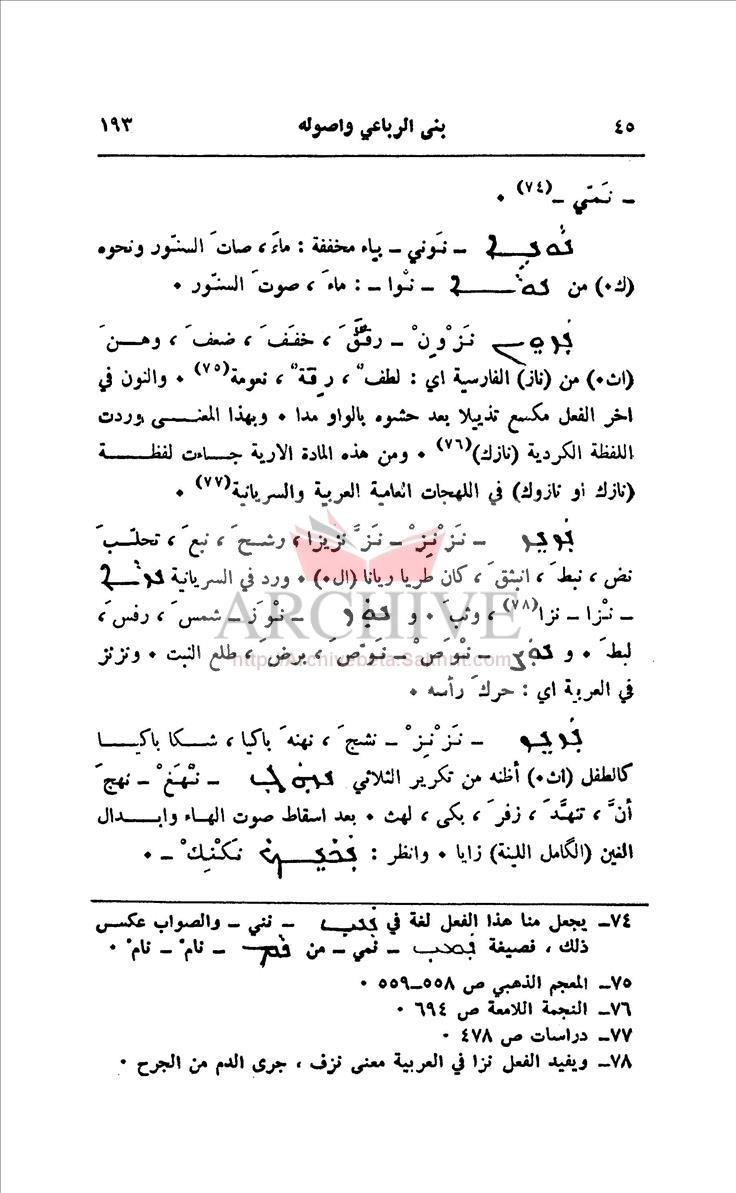 ٤٥ بنى الرباعي واصوله ١٩٣
ـ نَمّي ـ(٧٤) ٠
ـ نَوني ـ بياء مخففة : ماءَ ، صاتَ السنّور ونحوه
(ك٠) من ـ نْوا ـ : ماءَ ، صوتَ السنّور ٠
نَزْوِنْ ـ رقّقَ ، خففَ ، ضعفَ ، وهنَ
(اث٠) من (ناز) الفارسية اي : لطفٌ ، رقةٌ ، نعومة(٧٥) ٠ والنون في
اخر الفعل مكسع تذييلا بعد حشوه بالواو مدا ٠ وبهذا المعنــى وردت
اللفظة الكردية (نازك)(٧٦) ٠ ومن هذه المادة الارية جــاءت لفظــة
(نازك أو نازوك) في اللهجات العامية العربية والسريانية(٧٧) ٠
ـ نَزْنِزْ ـ نَزَّ نزيزا ، رشحَ ، نبعَ ، تحلّبَ
نض ، نبطَ ، انبثقَ ، كان طريا ريانا (ال٠) ٠ ورد في السريانية
ـ نْزا ـ نزا(٧٨) ، وثبَ ٠ و ـ نْوَز ـ شمسَ ، رفس ،
لبطَ ٠ و ـ نْوَصْ ـ نَوّصَ ، برضَ ، طلع النبت ٠ ونزنز
في العربية اي : حركَ رأسه ٠
ـ نَزْنِزْ ـ نشجَ ، نهنهَ باكيا ، شــكا باكيــا
كالطفل (اث٠) أظنه من تكرير الثلاثي ـ نْهَغْ ـ نهجَ
أنَّ ، تنهَّدَ ، زفرَ ، بكى ، لهث ٠ بعد اسقاط صوت الهاء وابــدال
الغين (الگامل اللينة) زايا ٠ وانظر : نَكْنِكْ ـ ٠
٧٤ـ يجعل منا هذا الفعل لغة في ـ نني ـ والصواب عكس
ذلك ، فصيغة ـ نمي ـ من ـ نامْ ـ نامْ ٠
٧٥ـ المعجم الذهبي ص ٥٥٨ـ٥٥٩ ٠
٧٦ـ النجمة اللامعة ص ٦٩٤ ٠
٧٧ـ دراسات ص ٤٧٨ ٠
٧٨ـ ويفيد الفعل نزا في العربية معنى نزف ، جرى الدم من الجرح ٠
ARCHIVE
http://Archivebeta.Sakhrit.com